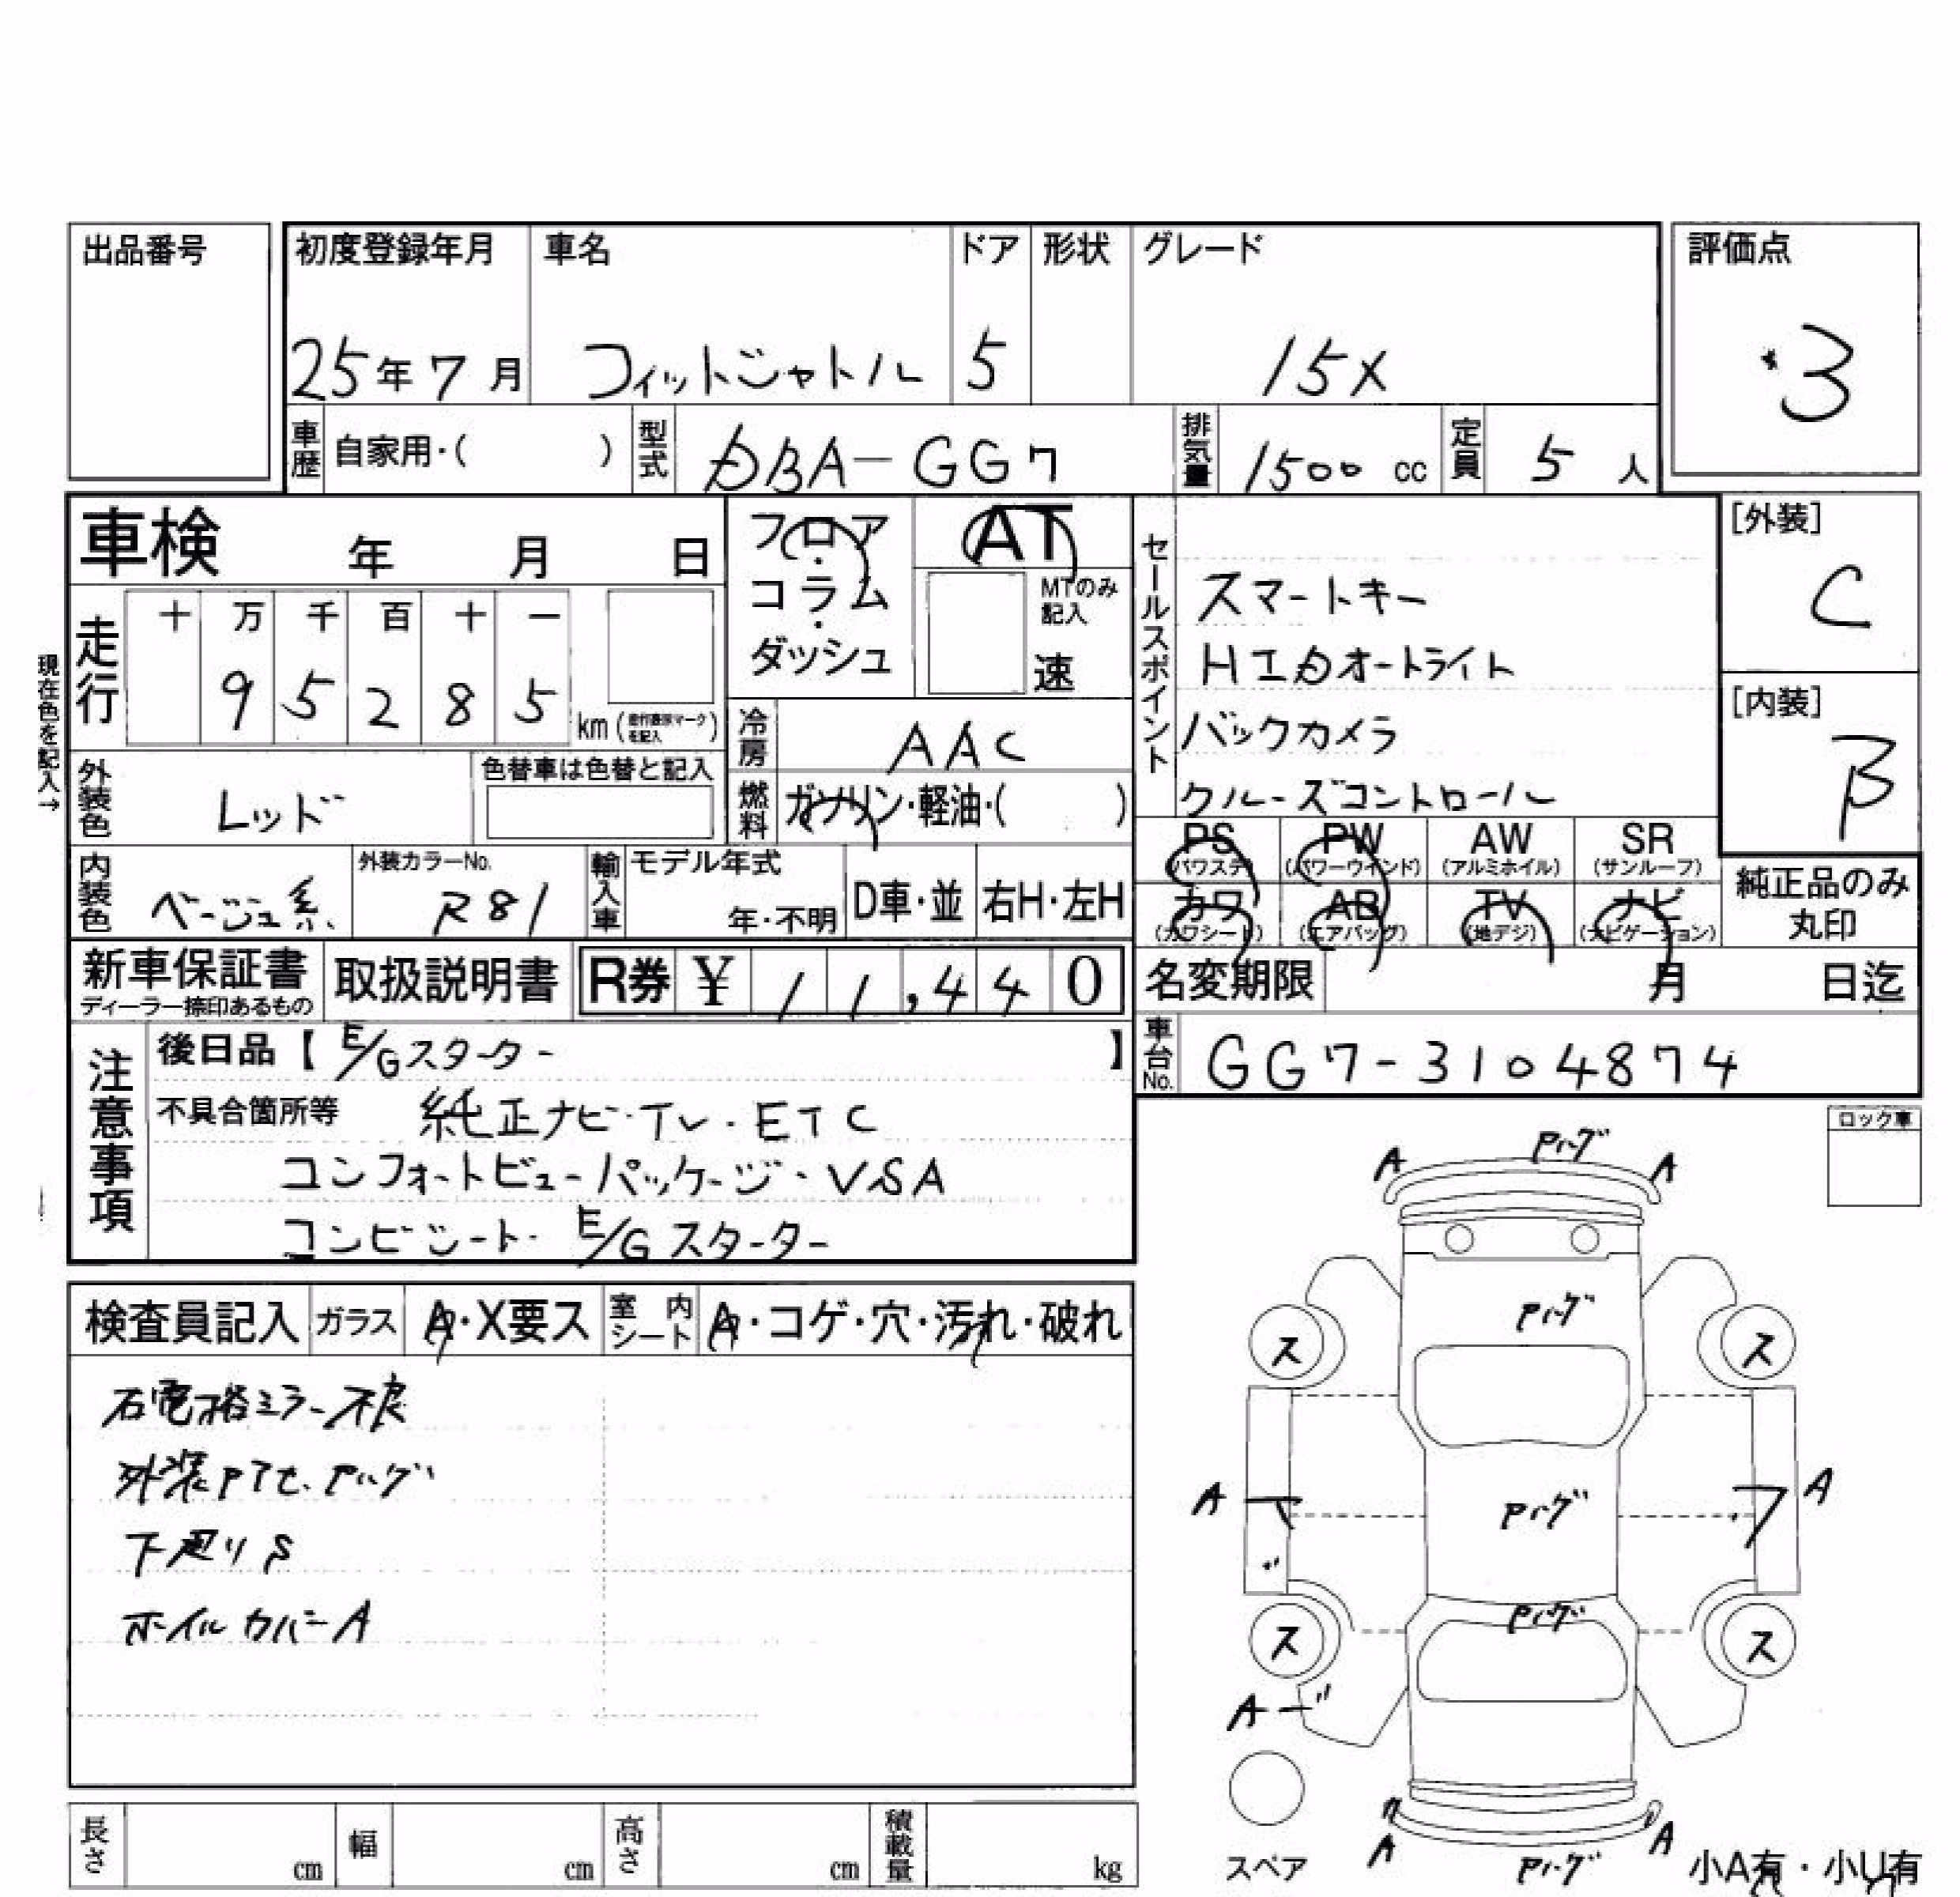 出品番号
初度登録年月 車名 ドア 形状 グレード 評価点
25年 7 月 フィットシャトル 5 15X 3
車歴 自家用・( ) 型式 DBA-GG7 排気量 1500 cc 定員 5 人
車検 年 月 日
フロア・コラム・ダッシュ
AT
MTのみ記入
速
セールスポイント
スマートキー
HIDオートライト
バックカメラ
クルーズコントロール
[外装]
C
[内装]
B
現在色を記入→
走行 十 万 千 百 十 一
9 5 2 8 5 km(
を記入 )
冷房 AAC
燃料 ガソリン・軽油・( )
外装色 レッド 色替車は色替と記入
内装色 ベージュ系 外装カラーNo. R81 輸入車 モデル年式 年・不明 D車・並 右H・左H
PS (パワステ) PW (パワーウインド) AW (アルミホイル) SR (サンルーフ)
カワ (カワシート) AB (エアバッグ) TV (地デジ) ナビ (ナビゲーション)
純正品のみ丸印
新車保証書 ディーラー捺印あるもの 取扱説明書 R券 ¥ 11,440
名変期限 月 日迄
車台No. GG7-3104874
注意事項
後日品【 E/Gスターター 】
不具合箇所等 純正ナビ・TV・ETC
コンフォートビューパッケージ・VSA
コンビシート・E/Gスターター
ロック車
検査員記入 ガラス A・X要ス 室内シート A・コゲ・穴・汚れ・破れ
右電格ミラー不良
外装
下廻りS
ホイルカバーA
A A
ス ス
A A
ス ス
A
スペア
A A
小A有・小U有
長さ cm 幅 cm 高さ cm 積載量 kg